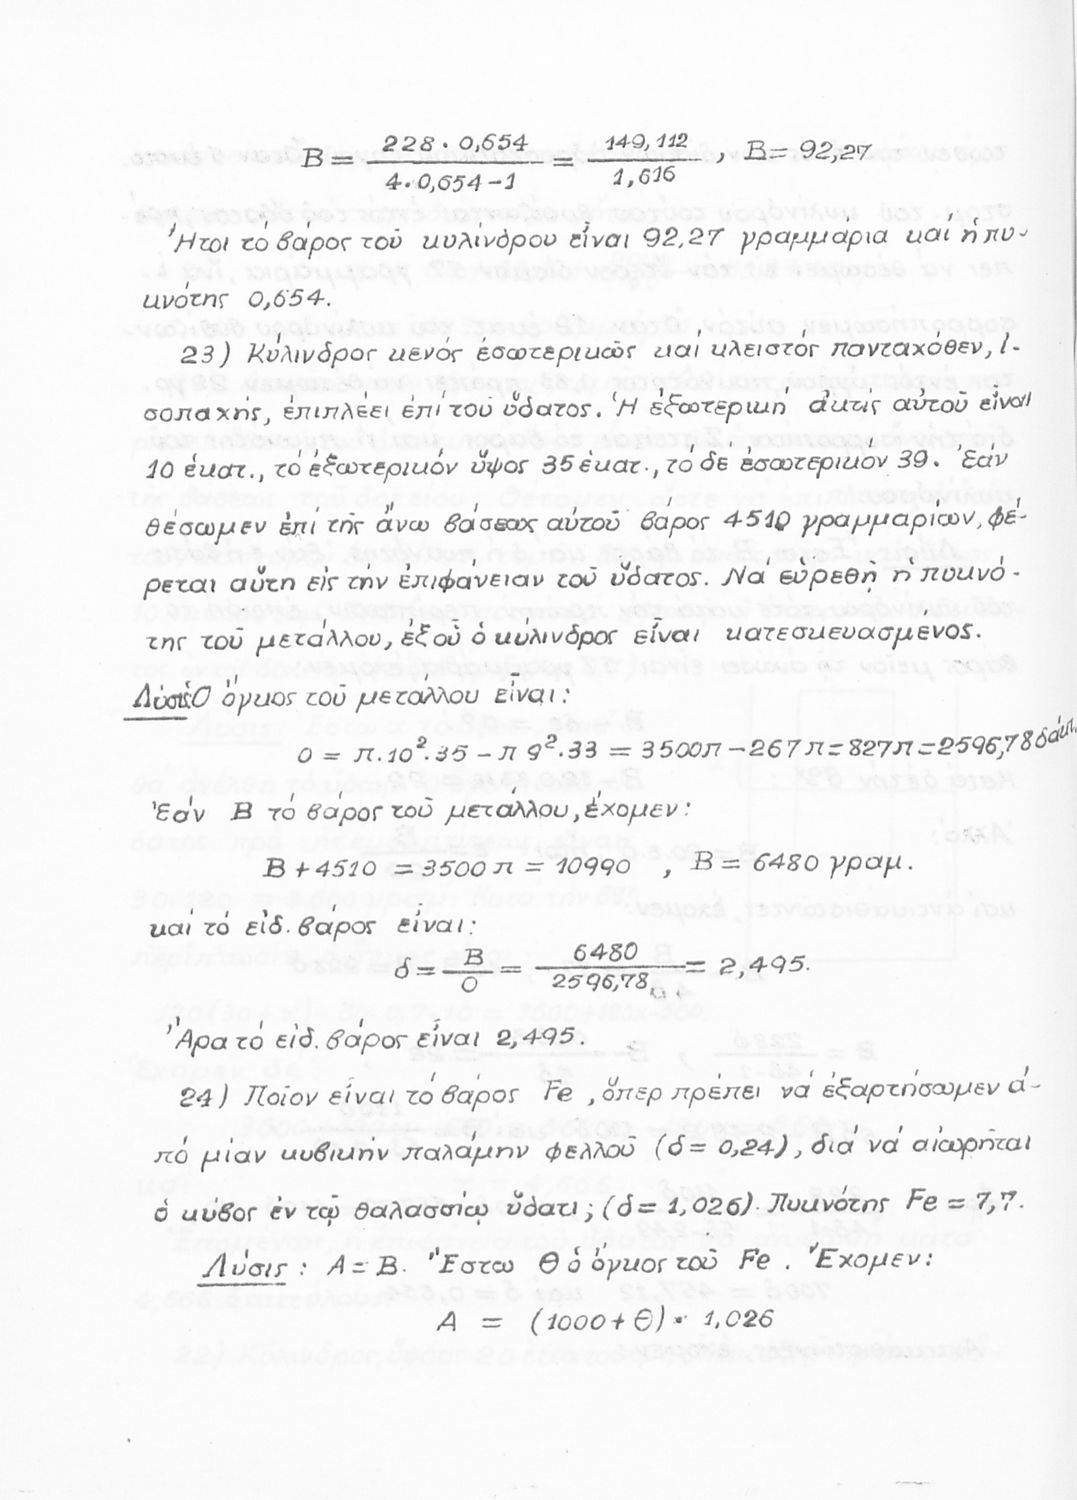 B = 228·0,654 / 4·0,654-1 = 149,112 / 1,616 , B = 92,27
Ἤτοι τό βάρος τοῦ κυλίνδρου εἶναι 92,27 γραμμάρια καί ἡ πυ-
κνότης 0,654.
23) Κύλινδρος κενός ἐσωτερικῶς καί κλειστός πανταχόθεν, ἰ-
σοπαχής, ἐπιπλέει ἐπί τοῦ ὕδατος. Ἡ ἐξωτερική ἀκτίς αὐτοῦ εἶναι
10 ἑκατ., τό ἐξωτερικόν ὕψος 35 ἑκατ., τό δέ ἐσωτερικόν 39. Ἐάν
θέσωμεν ἐπί τῆς ἄνω βάσεως αὐτοῦ βάρος 4510 γραμμαρίων, φέ-
ρεται αὕτη εἰς τήν ἐπιφάνειαν τοῦ ὕδατος. Νά εὑρεθῇ ἡ πυκνό-
της τοῦ μετάλλου, ἐξ οὗ ὁ κύλινδρος εἶναι κατεσκευασμενος.
Λύσις: Ὁ ὄγκος τοῦ μετάλλου εἶναι:
O = π.10².35 - π 9².33 = 3500π - 267π = 827π = 2596,78 δάκτ.
Ἐάν B τό βάρος τοῦ μετάλλου, ἔχομεν:
B + 4510 = 3500 π = 10990 , B = 6480 γραμ.
καί τό εἰδ. βάρος εἶναι:
δ = B / O = 6480 / 2596,78 = 2,495.
Ἄρα τό εἰδ. βάρος εἶναι 2,495.
24) Ποῖον εἶναι τό βάρος Fe, ὅπερ πρέπει νά ἐξαρτήσωμεν ἀ-
πό μίαν κυβικήν παλάμην φελλοῦ (δ = 0,24), διά νά αἰωρῆται
ὁ κύβος ἐν τῷ θαλασσίῳ ὕδατι; (δ = 1,026). Πυκνότης Fe = 7,7.
Λύσις: A = B. Ἔστω Θ ὁ ὄγκος τοῦ Fe. Ἔχομεν:
A = (1000 + Θ) · 1,026